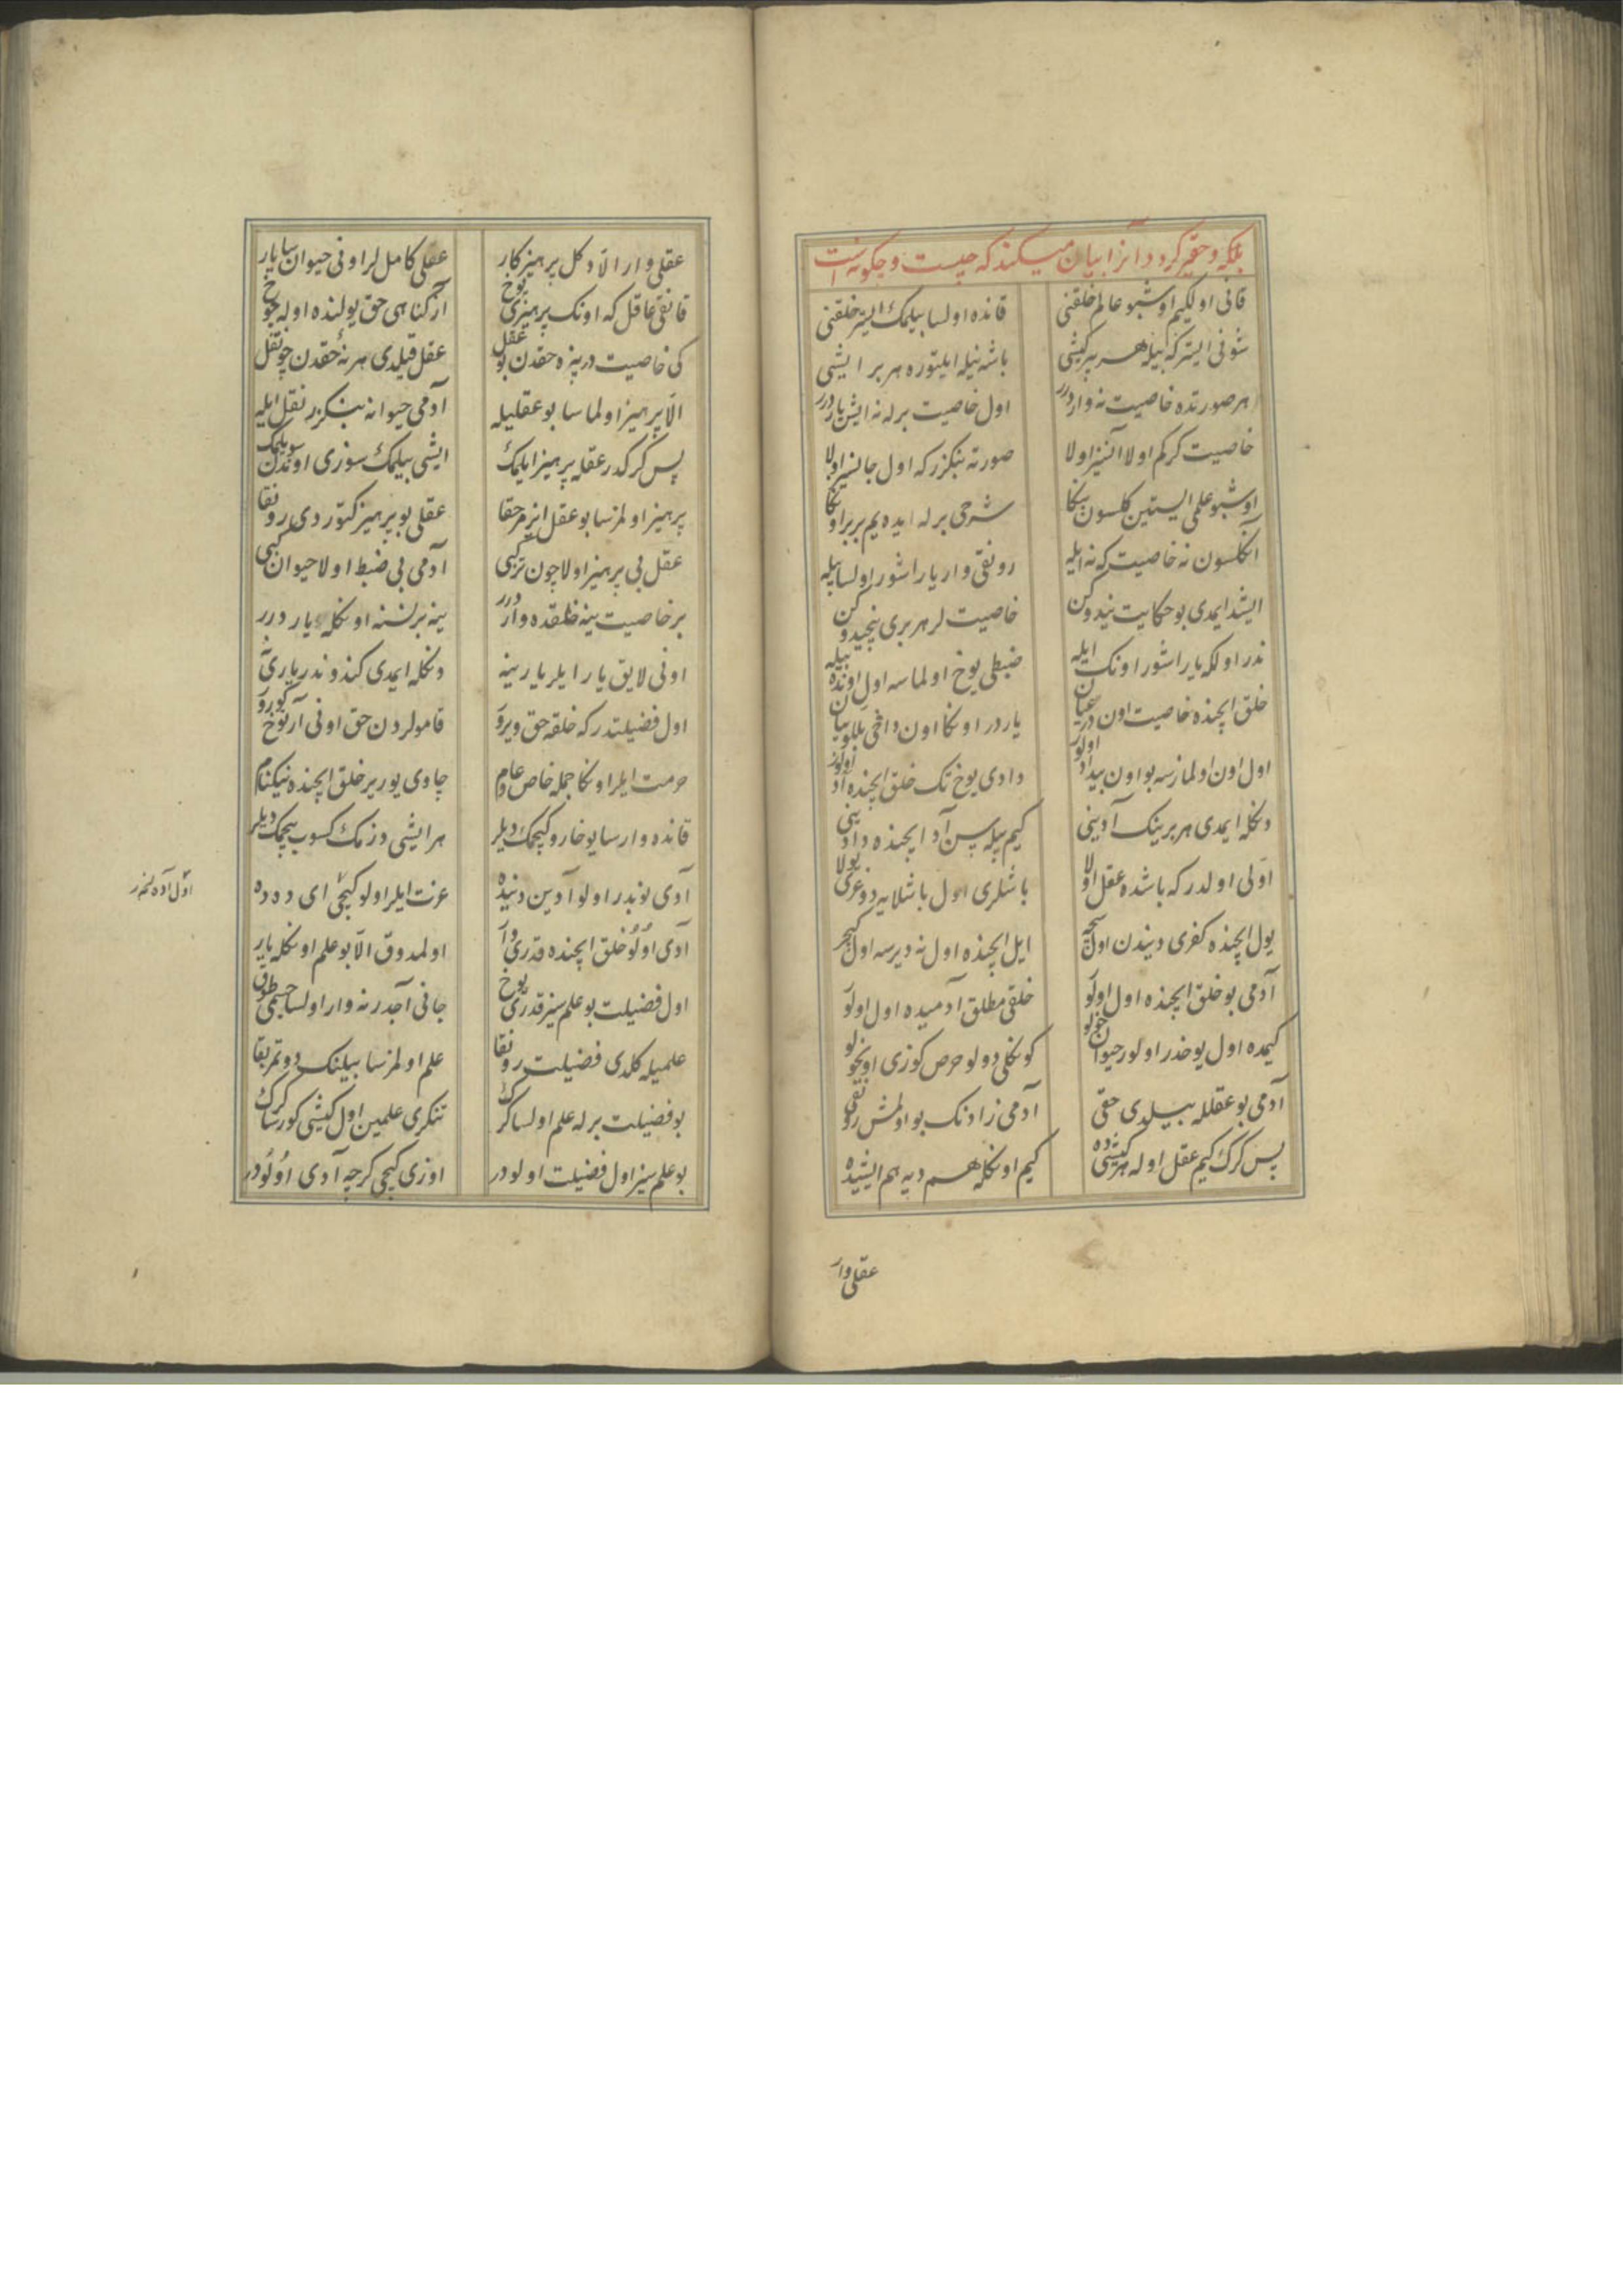 بلکه و حقیر کردد و آنرا بیان میکند که چیست و چکونه است
قانی اولکیم اوشبو عالم خلقنی قانده اولسا بیلمک ایستر خلقنی
شونی ایستر که بیله هر بر کیشی باشه نیله ایلتوره هر بر ایشی
هر صورتده خاصیت نه وار درر اول خاصیت برله نه ایشه یار درر
خاصیت کرکم اولا آنسیز اولا صورته بنکزر که اول جانسیز اولا
اوشبو علمی ایستین کلسون بنکا شرحی برله ایده یم بر بر اونکا
آنکلسون نه خاصیت که نه ایله رونقی وار یاراشور اولسا بیله
ایشد ایمدی بو حکایت نیدوکن خاصیت لر هر بری نیجیدوکن
ندر اولکه یاراشور اونک ایله ضبطی یوخ اولماسه اول اونده بیله
خلق ایچنده خاصیت اون در عیان یار در اونکا اون داخی بللو بیان
اول اون اولمازسه بو اون بیداد اولور دادی یوخ تک خلق ایچنده آد اولور
دنکله ایمدی هر برینک آدینی کیم بیله سن آد ایچنده دادینی
اولی اولدر که باشده عقل اولا باشلری اول باشلایه دوغری یولا
یول ایچنده کفری دیندن اول سچر ایل ایچنده اول نه دیرسه اول کیچر
آدمی بو خلق ایچنده اول اولو خلقی مطلق آدمیده اول اولو
کیمده اول یوخدر اولور حیوان خولو کونکلی دولو حرص کوزی اویخولو
آدمی بو عقلله بیلدی حقی آدمی زادنک بو اولمش رونقی
پس کرک کیم عقل اوله هر کیشیده کیم اونکله هم دیه هم ایشیده
عقلی وار
عقلی وار الا دکل پرهیز کار عقلی کامل لر اونی حیوان سایار
قانقی عاقل که اونک پرهیزی یوخ آز کناهی حق یولنده اوله چوخ
کی خاصیت در بزه حقدن بو عقل عقل قیلدی هر نه حقدن چو نقل
الا پرهیز اولماسا بو عقلیله آدمی حیوانه بنکزر نقل ایله
پس کرکدر عقله پرهیز ایلمک ایشی بیلمک سوزی اوندن سویلمک
پرهیز اولمزسا بو عقل ایرمز حقا عقلی بو پرهیز کتوردی رونقا
عقل بی پرهیز اولا چون ترکیبی آدمی بی ضبط اولا حیوان کبی
بر خاصیت ینه خلقده وار درر ینه بر نسنه اونکله یار درر
اونی لایق یار ایلر یارینه دنکله ایمدی کندو ندر یاری نه
اول فضیلتدر که خلقه حق ویرو قامولردن حق اونی آرتوخ کورو
حرمت ایلر اونکا جمله خاص و عام چاوی یوریر خلق ایچنده نیکنام
قانده وارسا یوخارو کیچمک دیلر هر ایشی دوزمک کسوب بیچمک دیلر
آدی بوندر اولو آدین دنیده عزت ایلر اولو کیچی ای دده
آدی اولو خلق ایچنده قدری وار اولمدوق الا بو علم اونکله یار
اول فضیلت بو علم سیز قدری یوخ جانی آجدر نه وار اولسا جسمی طوق
علمیله کلدی فضیلت رونقا علم اولمزسا بیلنک دوتمز بقا
بو فضیلت برله علم اولسا کرک تنکری علمین اول کیشی کورسا کرک
بو علم سیز اول فضیلت اولودر اوزی کیچی کرچه آدی اولودر